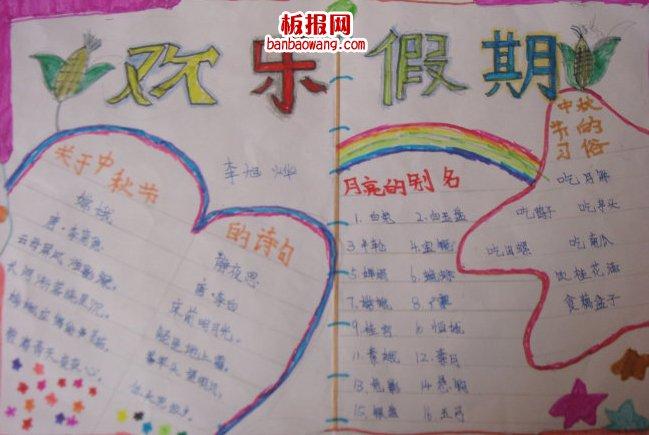 板报网
banbaowang.com
欢乐假期
关于中秋节
的诗句
嫦娥
唐·李商隐
云母屏风烛影深，
长河渐落晓星沉。
嫦娥应悔偷灵药，
碧海青天夜夜心。
李旭
静夜思
唐·李白
床前明月光，
疑是地上霜。
举头望明月，
低头思故乡。
月亮的别名
1.白兔 2.白玉盘
3.半轮 4.宝镜
5.婵娟 6.蟾蜍
7.嫦娥 8.广寒
9.桂宫 10.恒娥
11.素娥 12.
13. 14.悬钩
15.银盘 16.玉弓
中秋
节的
习俗
吃月饼
吃鸭子 吃芋头
吃田螺 吃南瓜
饮桂花酒
食藕盒子